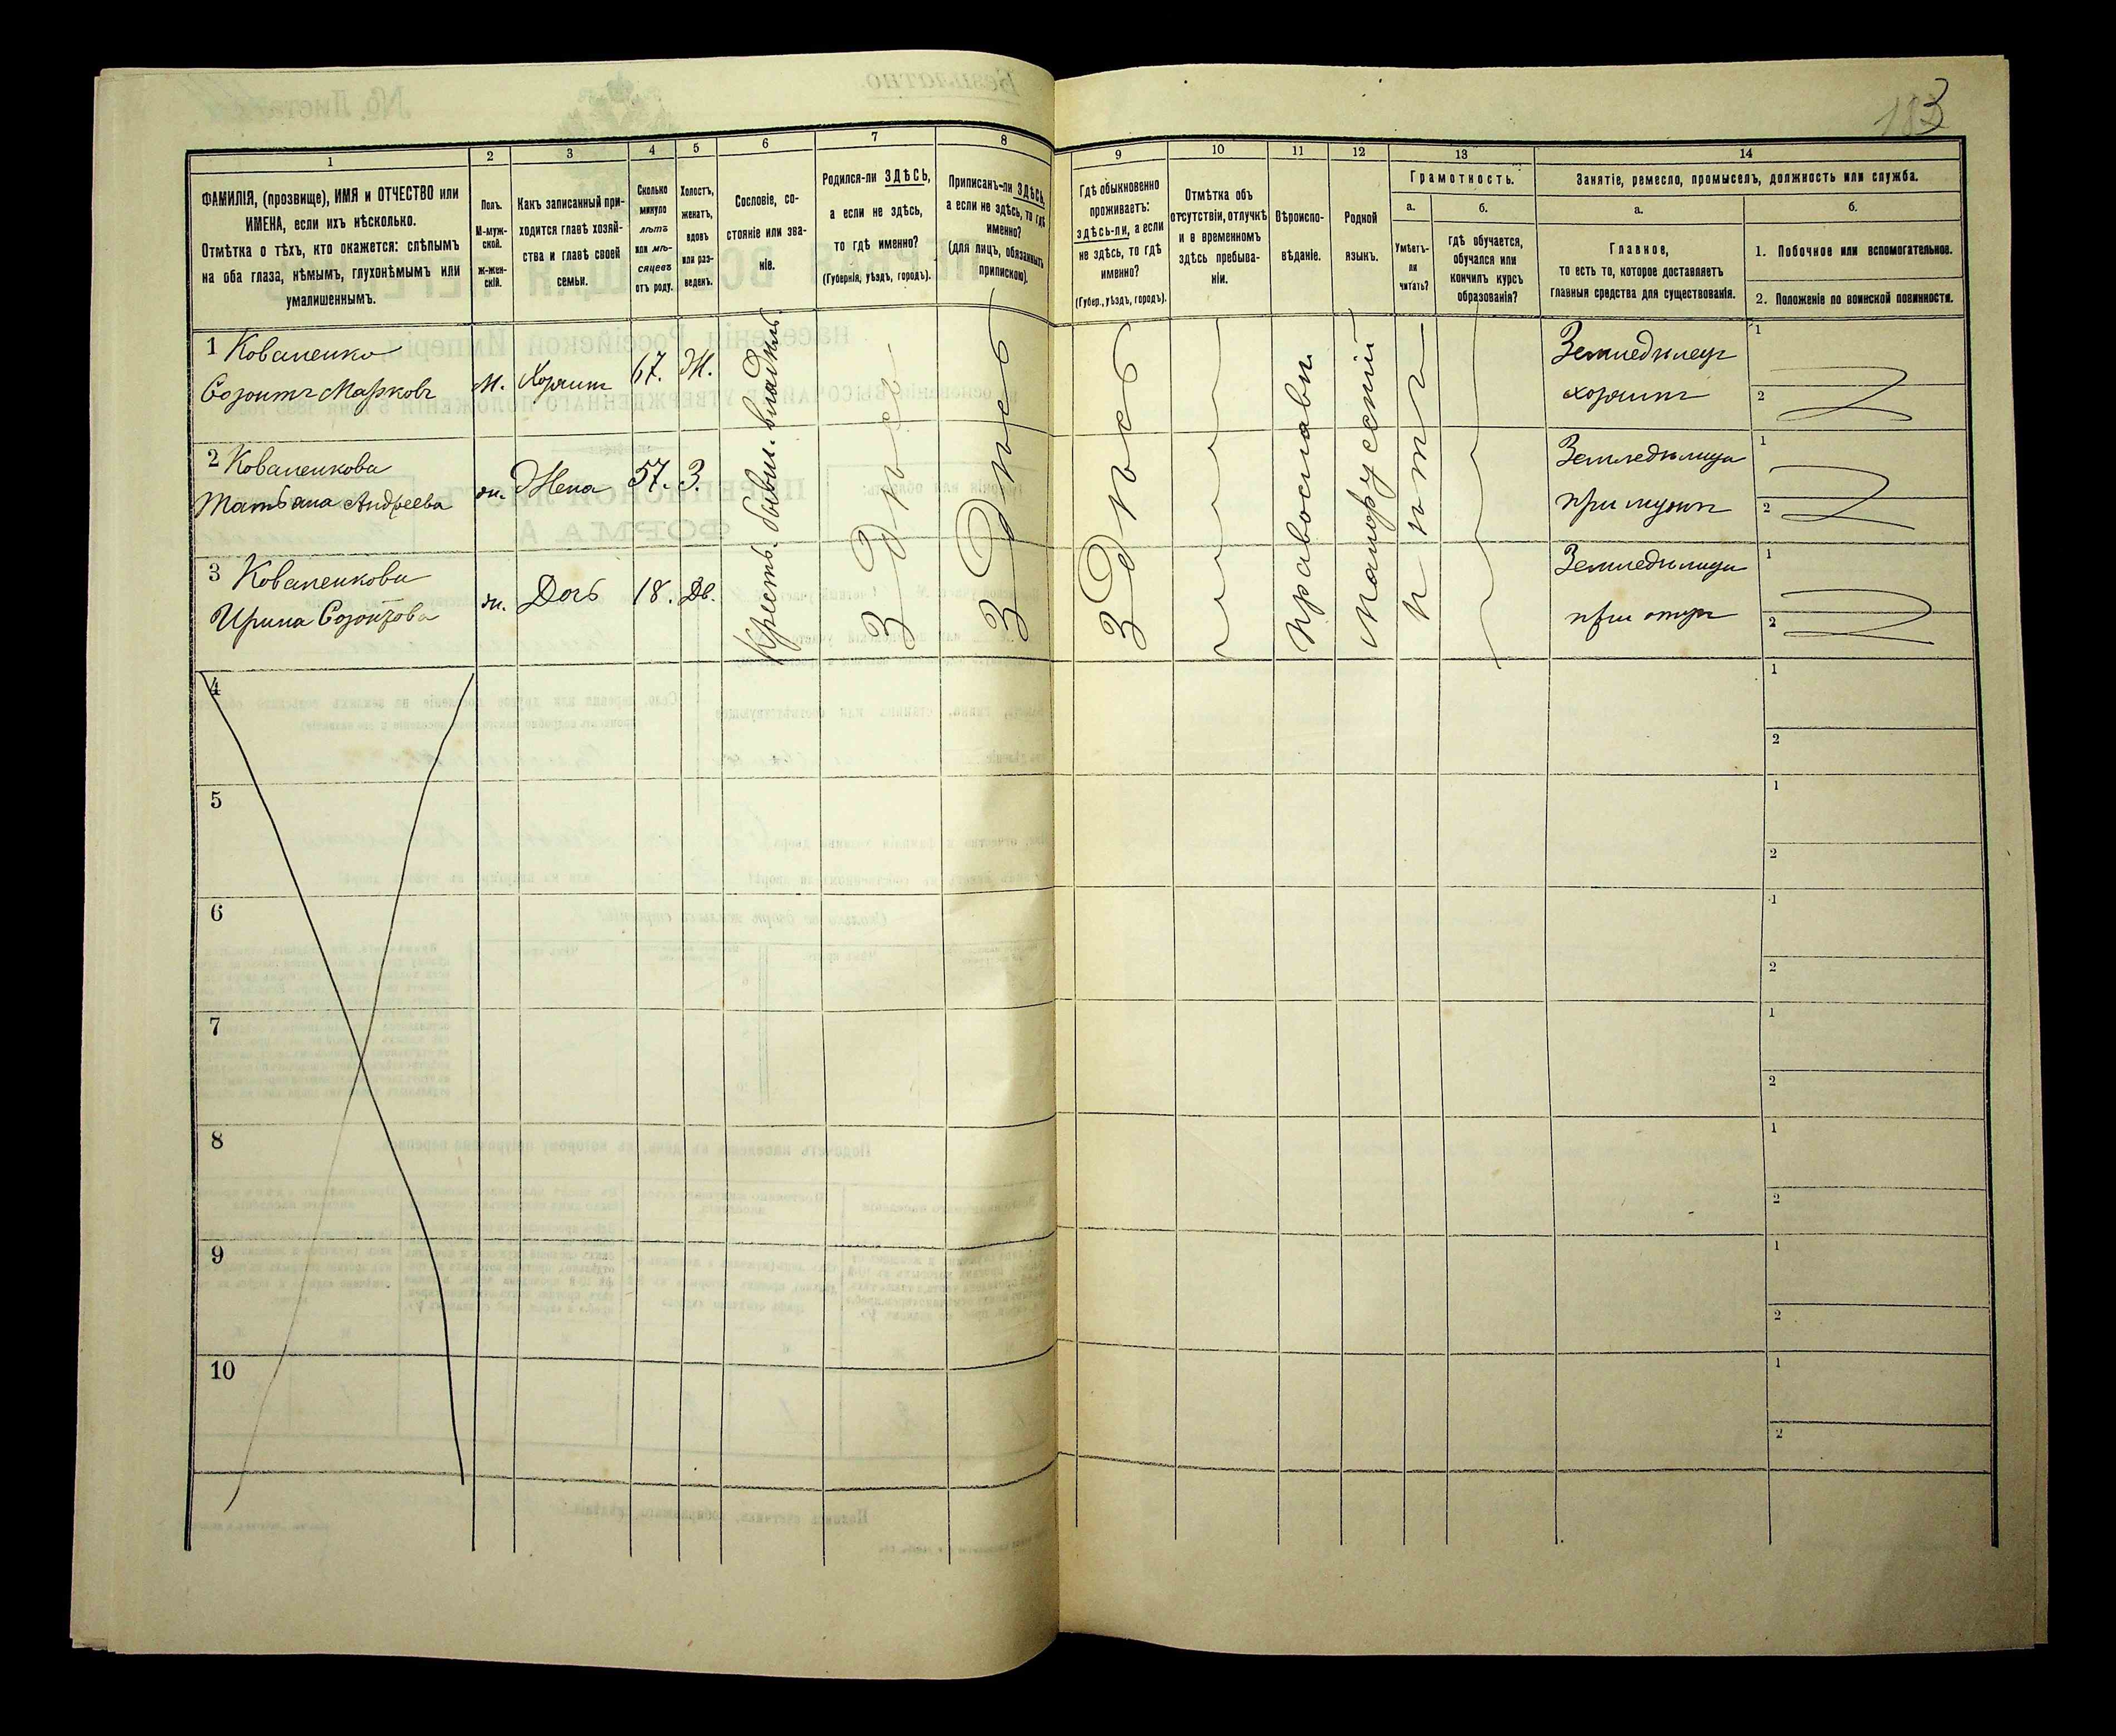 3
1 2 3 4 5 6 7 8 9 10 11 12 13 14
ФАМИЛІЯ, (прозвище), ИМЯ и ОТЧЕСТВО или
ИМЕНА, если ихъ нѣсколько.
Отмѣтка о тѣхъ, кто окажется: слѣпымъ
на оба глаза, нѣмымъ, глухонѣмымъ или
умалишеннымъ.
Полъ.
М-муж-
ской.
Ж-жен-
скій.
Какъ записанный при-
ходится главѣ хозяй-
ства и главѣ своей
семьи.
Сколько
минуло
лѣтъ
или мѣ-
сяцевъ
отъ роду.
Холостъ,
женатъ,
вдовъ
или раз-
веденъ.
Сословіе, со-
стояніе или зва-
ніе.
Родился-ли ЗДѢСЬ,
а если не здѣсь,
то гдѣ именно?
(Губернія, уѣздъ, городъ).
Приписанъ-ли ЗДѢСЬ,
а если не здѣсь, то гдѣ
именно?
(для лицъ, обязанныхъ
припискою).
Гдѣ обыкновенно
проживаетъ:
здѣсь-ли, а если
не здѣсь, то гдѣ
именно?
(Губер., уѣздъ, городъ).
Отмѣтка объ
отсутствіи, отлучкѣ
и о временномъ
здѣсь пребыва-
ніи.
Вѣроиспо-
вѣданіе.
Родной
языкъ.
Грамотность.
а.
Умѣетъ-
ли
читать?
б.
гдѣ обучается,
обучался или
кончилъ курсъ
образованія?
Занятіе, ремесло, промыселъ, должность или служба.
а.
Главное,
то есть то, которое доставляетъ
главныя средства для существованія.
б.
1. Побочное или вспомогательное.
2. Положеніе по воинской повинности.
1 Коваленко
Созонтъ Марковъ
М. Хозяинъ 67. Ж.
Земледѣлецъ
хозяинъ
1
2
2 Коваленкова
Татьяна Андреева
ж. Жена 57. З.
Земледѣлица
при мужѣ
1
2
3 Коваленкова
Ирина Созонтова
ж. Дочь 18. Дв.
Земледѣлица
при отцѣ
1
2
Крестъ. бывш. владѣл.
Здѣсь
Здѣсь
Здѣсь
Православн
Малорусскій
нѣтъ
4
1
2
5
1
2
6
1
2
7
1
2
8
1
2
9
1
2
10
1
2